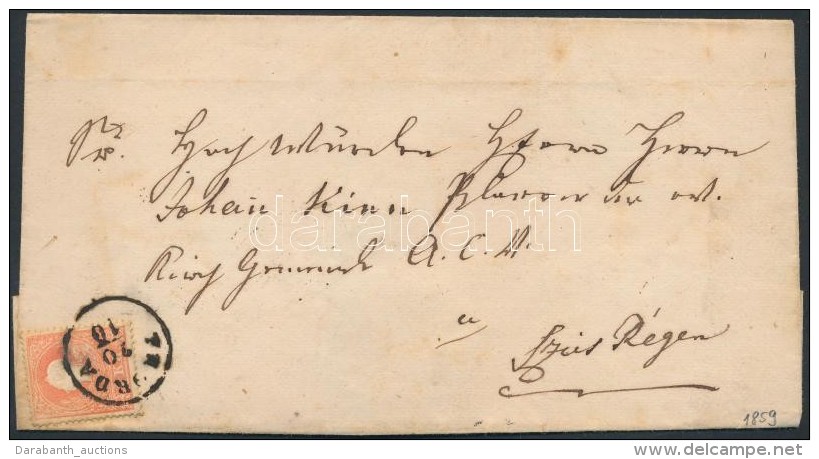 Sr. Hochwürden Herrn Herrn
Johann Kinn Pfarrer der ev.
Kirch Gemeinde A. C. V.
a
Szás Régen
THORDA
20
10
1859
darabanth
Darabanth_auctions
delcampe.net